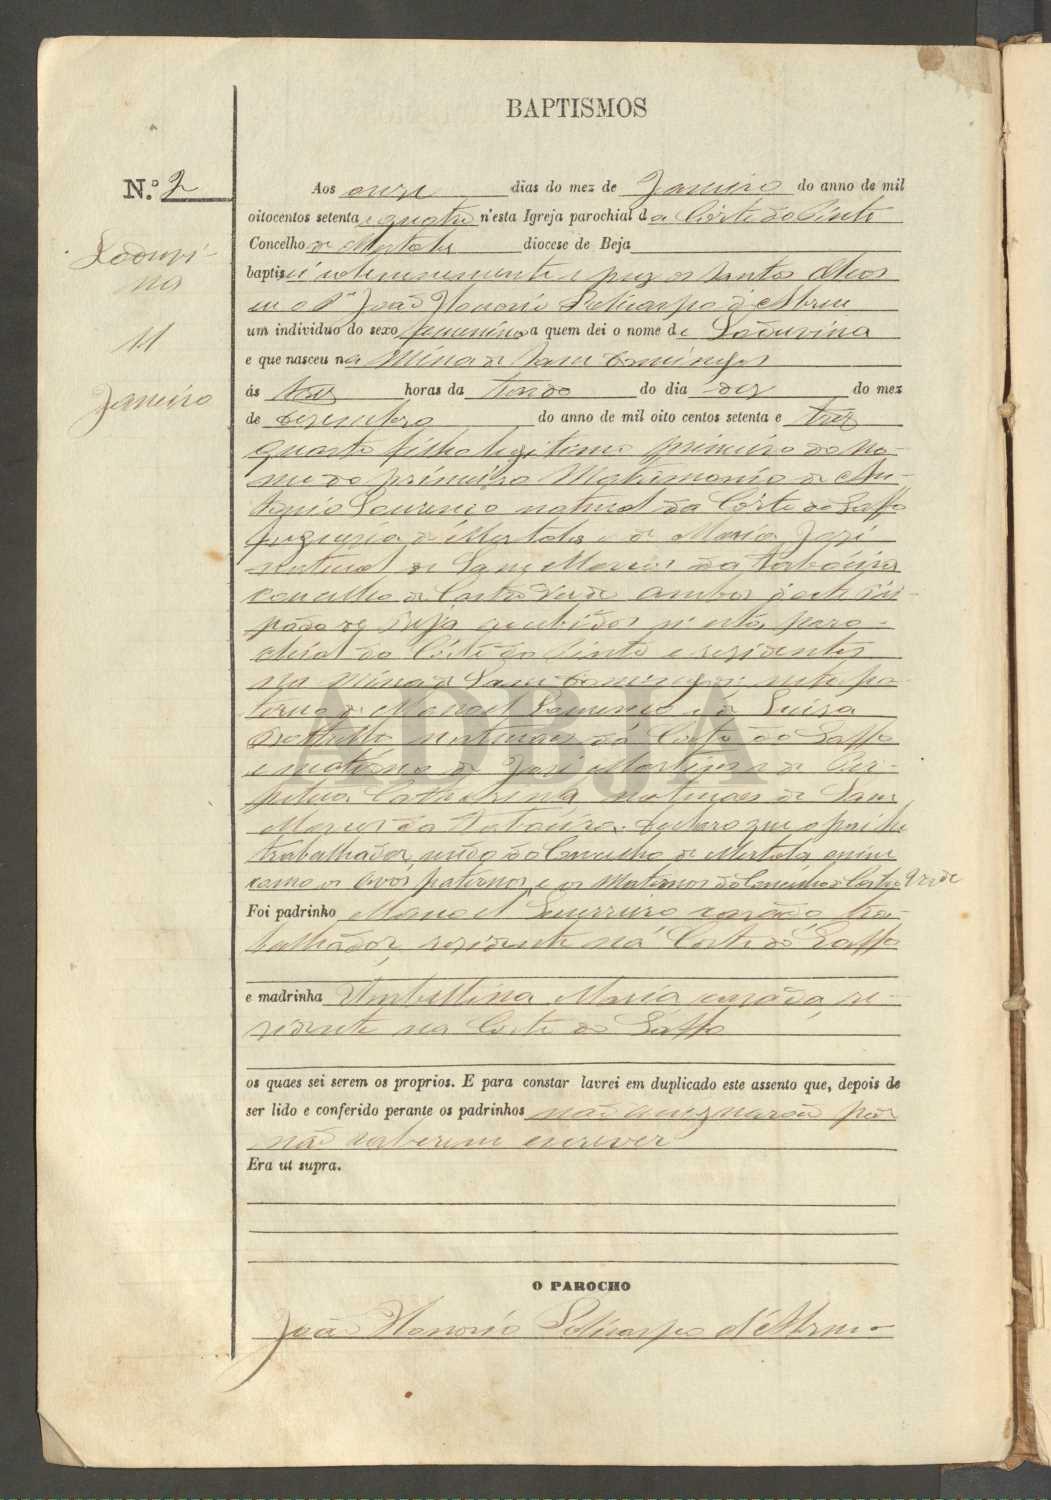 BAPTISMOS
N.º 2
Lodovi-
na
11
Janeiro
Aos onze dias do mez de Janeiro do anno de mil
oitocentos setenta e quatro n'esta Igreja parochial da Côrte do Pinto
Concelho de Mertola diocese de Beja
baptisei solemnemente e puz os santos Oleos
eu o P.e João Honorio Policarpo d'Abreu
um individuo do sexo femenino a quem dei o nome de Lodovina
e que nasceu na Mina de Sam Domingos
ás tres horas da tarde do dia dez do mez
de dezembro do anno de mil oito centos setenta e trez
quarta filha legitima primeira do no-
me do primeiro Matrimonio de An-
tonio Lourenço natural da Côrte do Gaffo
freguezia de Mertola e de Maria José
natural de Sam Marcos da Atabóeira
concelho de Castro Verde ambos deste Bis-
pado de Beja recebidos n'esta paro-
chial da Côrte do Pinto e rezidentes
na Mina de Sam Domingos: neta pa-
terna de Manoel Lourenço e de Luiza
naturaes da Corte do Gaffo
e materna de José Martins e de Per-
petua Catherina naturaes de Sam
Marcos da Atabóeira. Declaro que o pai he
trabalhador, sendo do Concelho de Mertola assim
como os avós paternos, e os Maternos do Concelho de Castro Verde
Foi padrinho Manoel Guerreiro casado tra-
balhador, rezidente na Corte do Gaffo
e madrinha Umbellina Maria casada, re-
zidente na Corte do Gaffo
os quaes sei serem os proprios. E para constar lavrei em duplicado este assento que, depois de
ser lido e conferido perante os padrinhos não assignarão por
não saberem escrever
Era ut supra.
O PAROCHO
João Honorio Policarpo d'Abreu
ADBJA